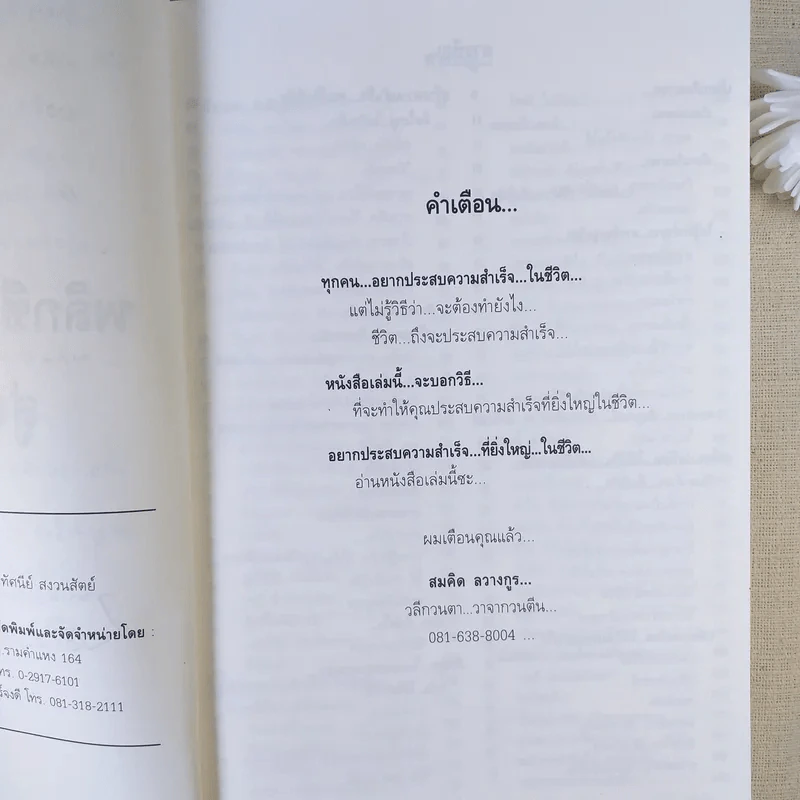 ทัศนีย์ สงวนสัตย์
ดพิมพ์และจัดจำหน่ายโดย :
.รามคำแหง 164
ทร. 0-2917-6101
โทร. 081-318-2111
คำเตือน...
ทุกคน...อยากประสบความสำเร็จ...ในชีวิต...
แต่ไม่รู้วิธีว่า...จะต้องทำยังไง...
ชีวิต...ถึงจะประสบความสำเร็จ...
หนังสือเล่มนี้...จะบอกวิธี...
ที่จะทำให้คุณประสบความสำเร็จที่ยิ่งใหญ่ในชีวิต...
อยากประสบความสำเร็จ...ที่ยิ่งใหญ่...ในชีวิต...
อ่านหนังสือเล่มนี้ซะ...
ผมเตือนคุณแล้ว...
สมคิด ลวางกูร...
วลีกวนตา...วาจากวนตีน...
081-638-8004 ...